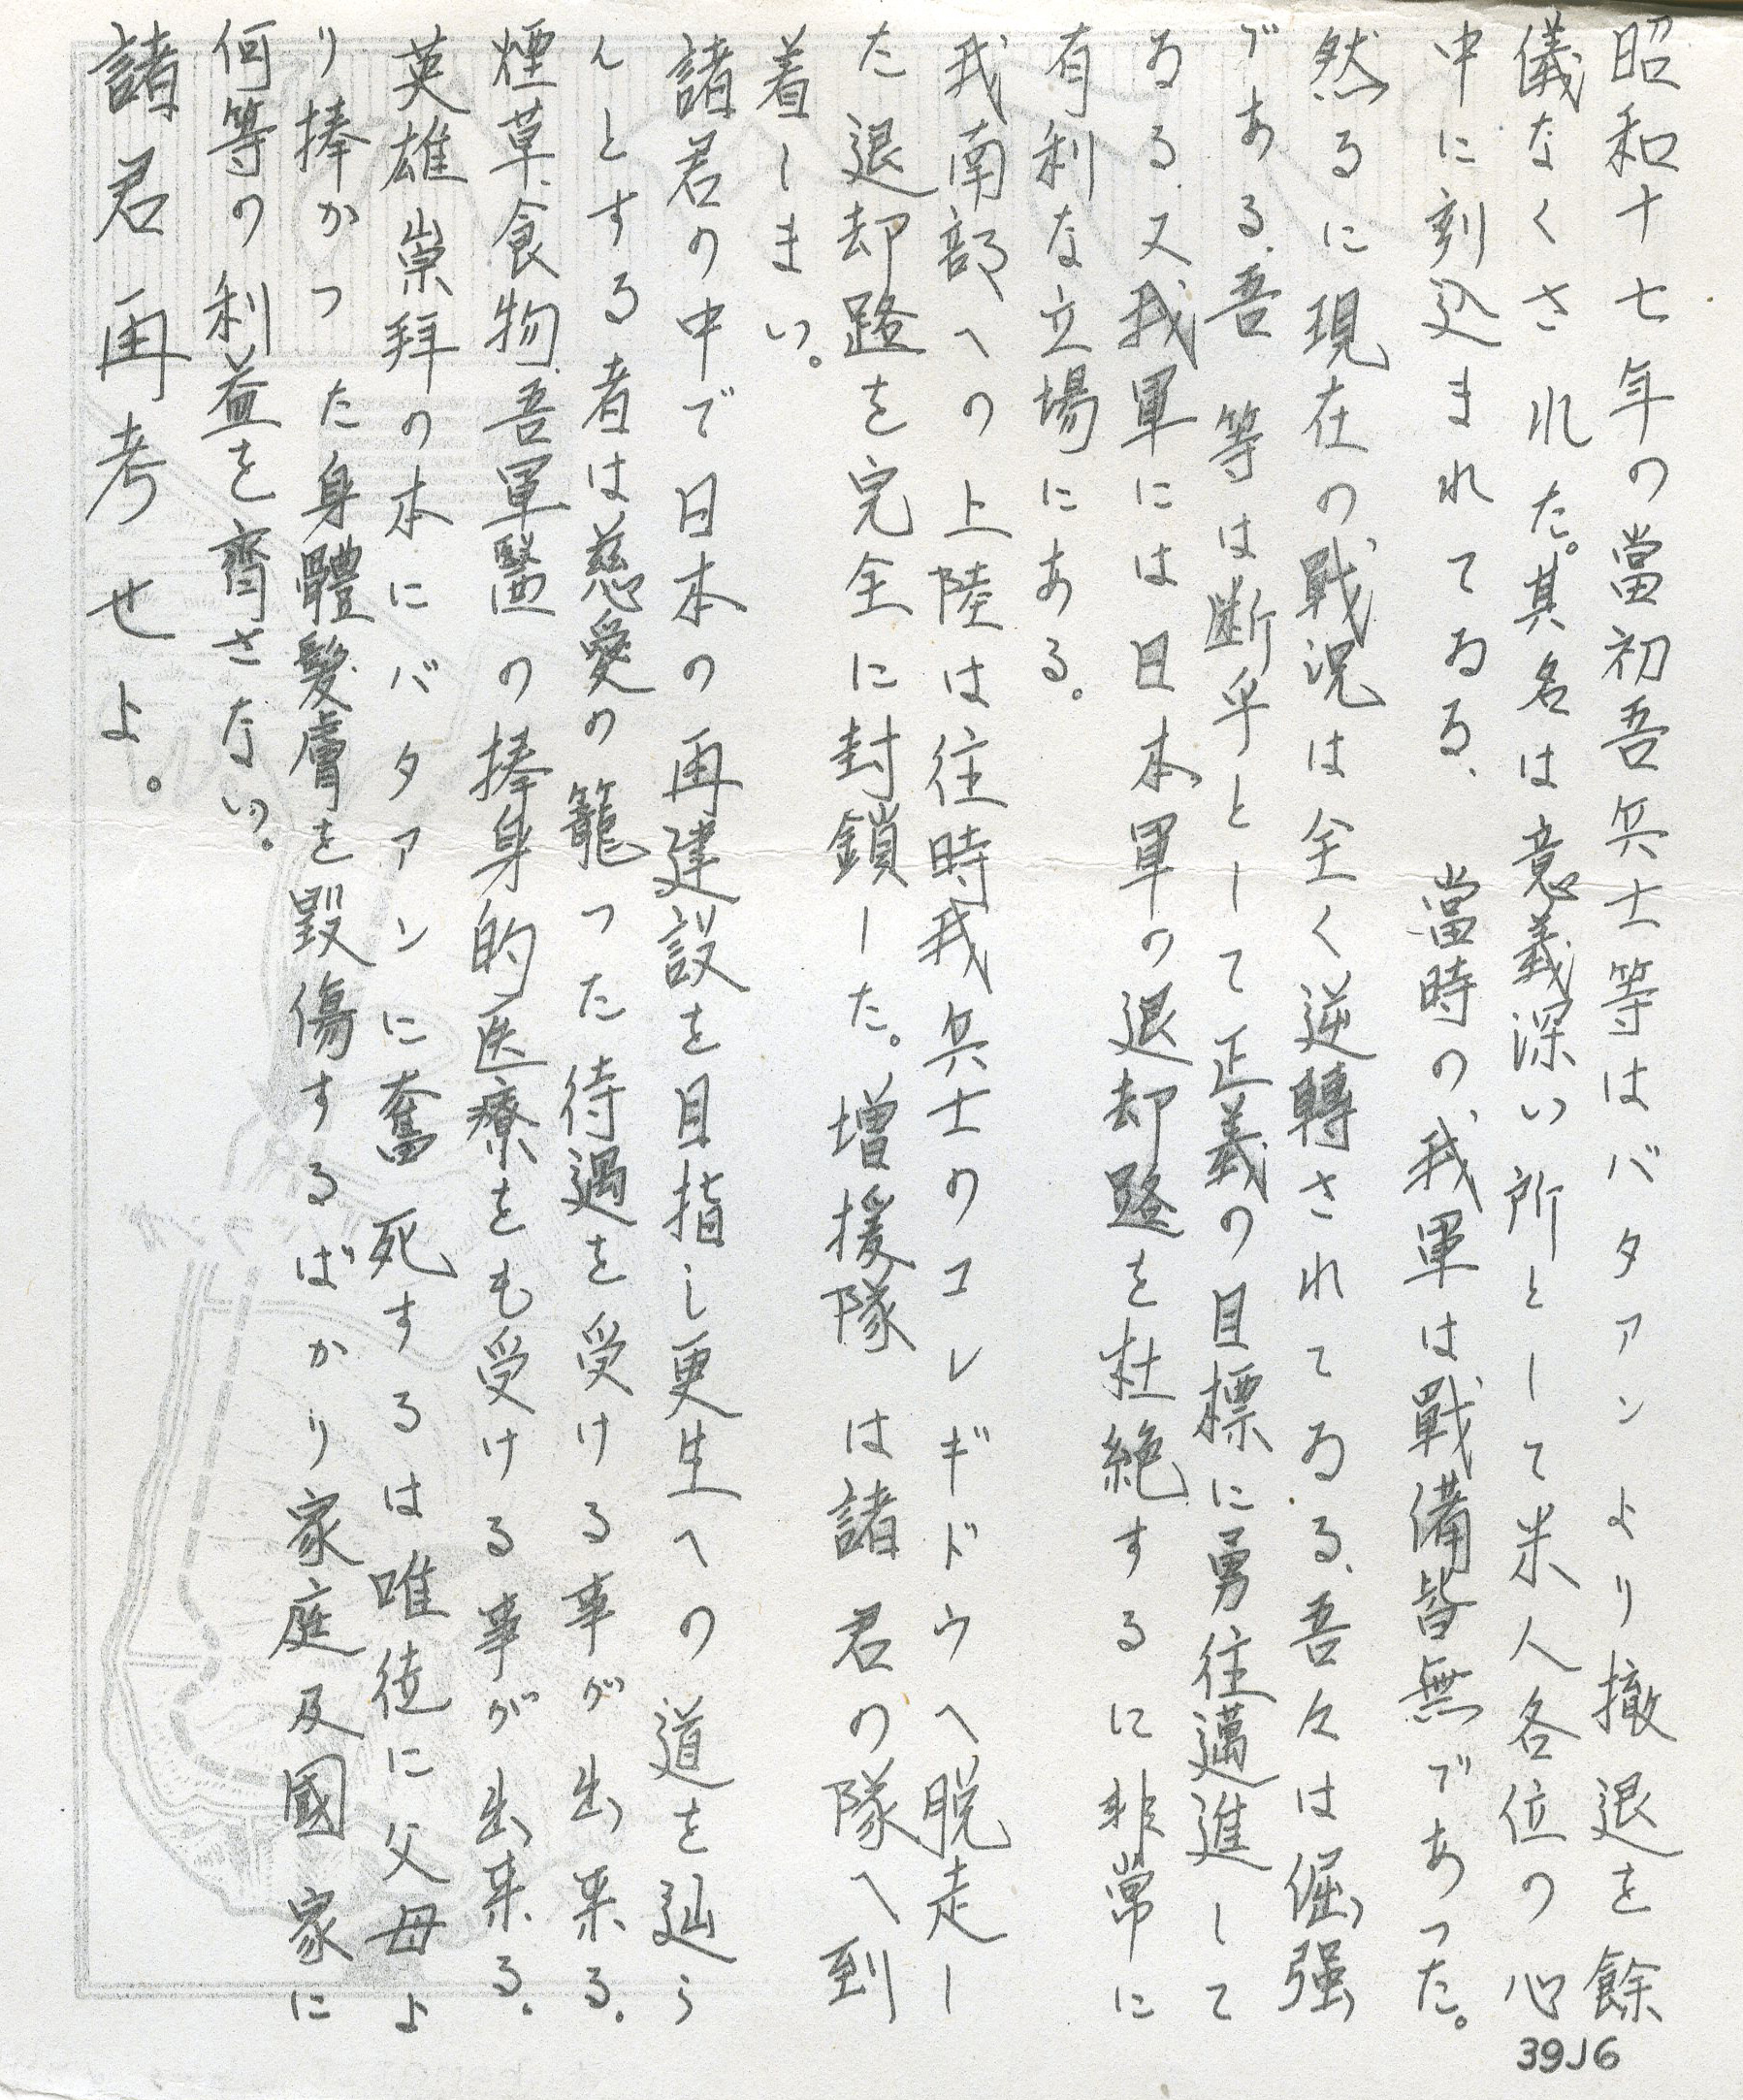 昭和十七年の當初吾兵士等はバタアンより撤退を餘
儀なくされた。其名は意義深い所として米人各位の心
中に刻込まれてゐる、當時の我軍は戰備皆無であった。
然るに現在の戰況は全く逆轉されてゐる、吾々は倔强
である、吾等は断乎として正義の目標に勇往邁進して
ゐる、又我軍には日本軍の退却路を杜絶するに非常に
有利な立場にある。
我南部への上陸は往時我兵士のコレギドウへ脱走し
た退却路を完全に封鎖した。増援隊は諸君の隊へ到
着しまい。
諸君の中で日本の再建設を目指し更生への道を辿ら
んとする者は慈愛の籠った待遇を受ける事が出来る。
煙草、食物、吾軍醫の捧身的医療をも受ける事が出来る。
英雄崇拜の本にバタアンに奮死するは唯徒に父母よ
り捧かつた身體髮膚を毀傷するばかり家庭及國家に
何等の利益を齎さない。
諸君再考せよ。
39J6